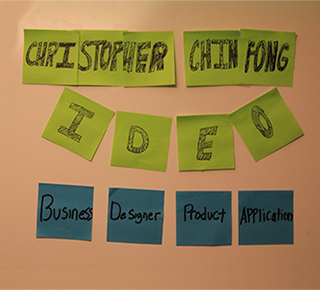 CHRISTOPHER CHIN FONG
IDEO
Business Designer Product APPlicATiON